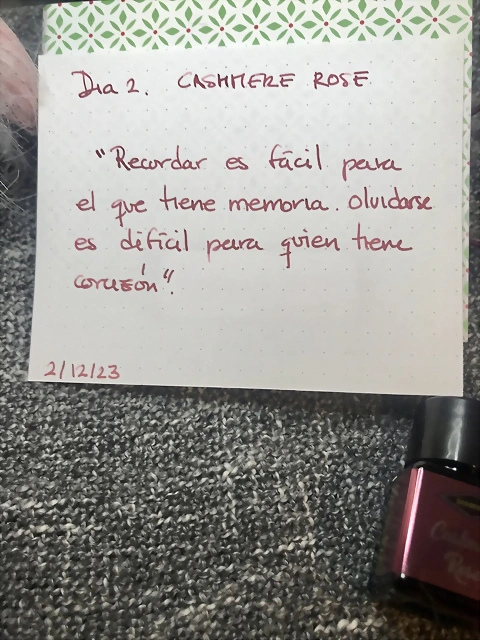 Dia 2. CASHMERE ROSE
"Recordar es fácil para
el que tiene memoria. Olvidarse
es difícil para quien tiene
corazón".
2/12/23
Rose